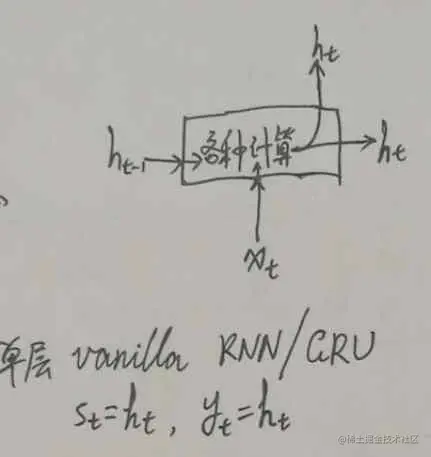 h_t
h_{t-1} 各种计算 h_t
x_t
单层 vanilla RNN/GRU
s_t=h_t, y_t=h_t
@稀土掘金技术社区